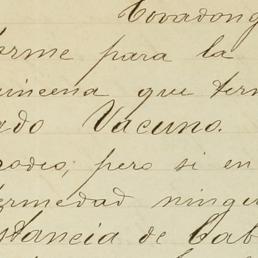 Covadong
orme para la
uincena que ter
ado Vacuno.
odeo; pero si en
ermedad ningu
stancia de Cab